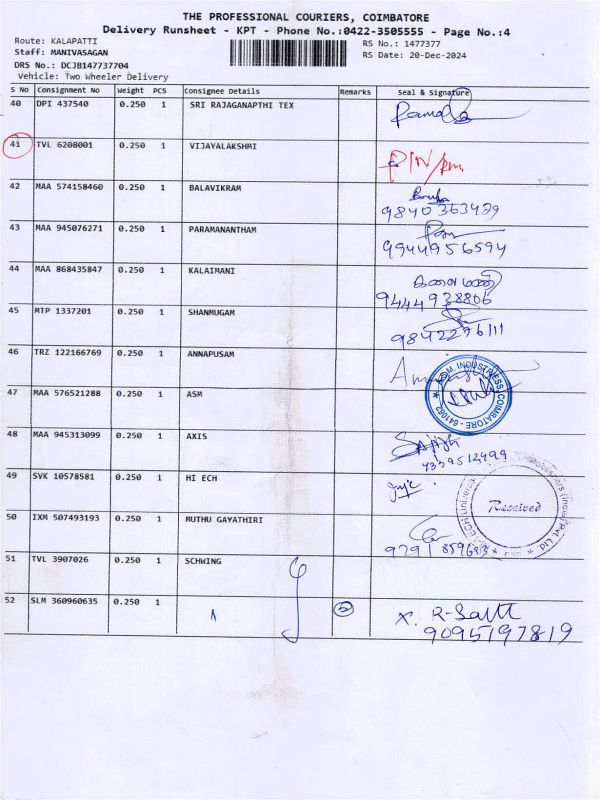 THE PROFESSIONAL COURIERS, COIMBATORE
Delivery Runsheet - KPT - Phone No.:0422-3505555 - Page No.:4
Route: KALAPATTI
RS No.: 1477377
Staff: MANIVASAGAN
RS Date: 20-Dec-2024
DRS No.: DCJB147737704
Vehicle: Two Wheeler Delivery
S No Consignment No Weight PCS Consignee Details Remarks Seal & Signature
40 DPI 437540 0.250 1 SRI RAJAGANAPTHI TEX
41 TVL 6208001 0.250 1 VIJAYALAKSHMI
42 MAA 574158460 0.250 1 BALAVIKRAM
9840363429
43 MAA 945076271 0.250 1 PARAMANANTHAM
9944956594
44 MAA 868435847 0.250 1 KALAIMANI கலைமணி
9444938806
45 MTP 1337201 0.250 1 SHANMUGAM
9842296111
46 TRZ 122166769 0.250 1 ANNAPUSAM
47 MAA 576521288 0.250 1 ASM
COIMBATORE - 641062
48 MAA 945313099 0.250 1 AXIS
7339512499
49 SVK 10578581 0.250 1 HI ECH
Received
50 IXM 507493193 0.250 1 MUTHU GAYATHIRI
51 TVL 3907026 0.250 1 SCHWING
52 SLM 360960635 0.250 1
9095197819